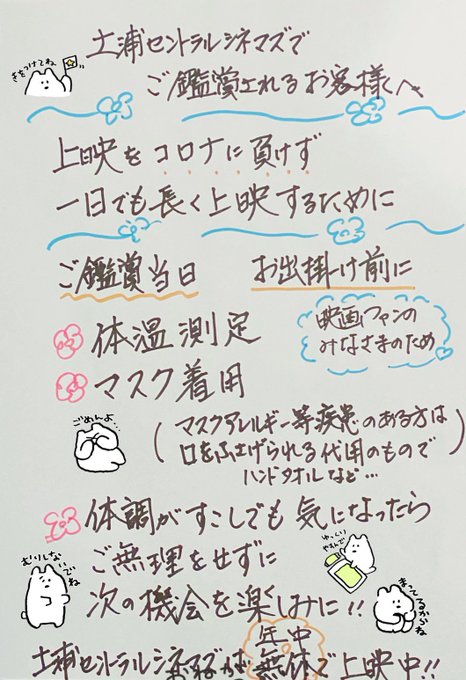 土浦セントラルシネマズで
きをつけてね
ご鑑賞されるお客様へ
上映をコロナに負けず
一日でも長く上映するために
ご鑑賞当日 お出掛け前に
体温測定
映画ファンの
みなさまのため
マスク着用
ごめんよ…
(マスクアレルギー等疾患のある方は
口をふさげられる代用のもので
ハンドタオルなど…)
体調がすこしでも気になったら
むりしないでね
ご無理をせずに
ゆっくり
やすんで
次の機会を楽しみに!!
まってるからね
年中
土浦セントラルシネマズが無休で上映中!!